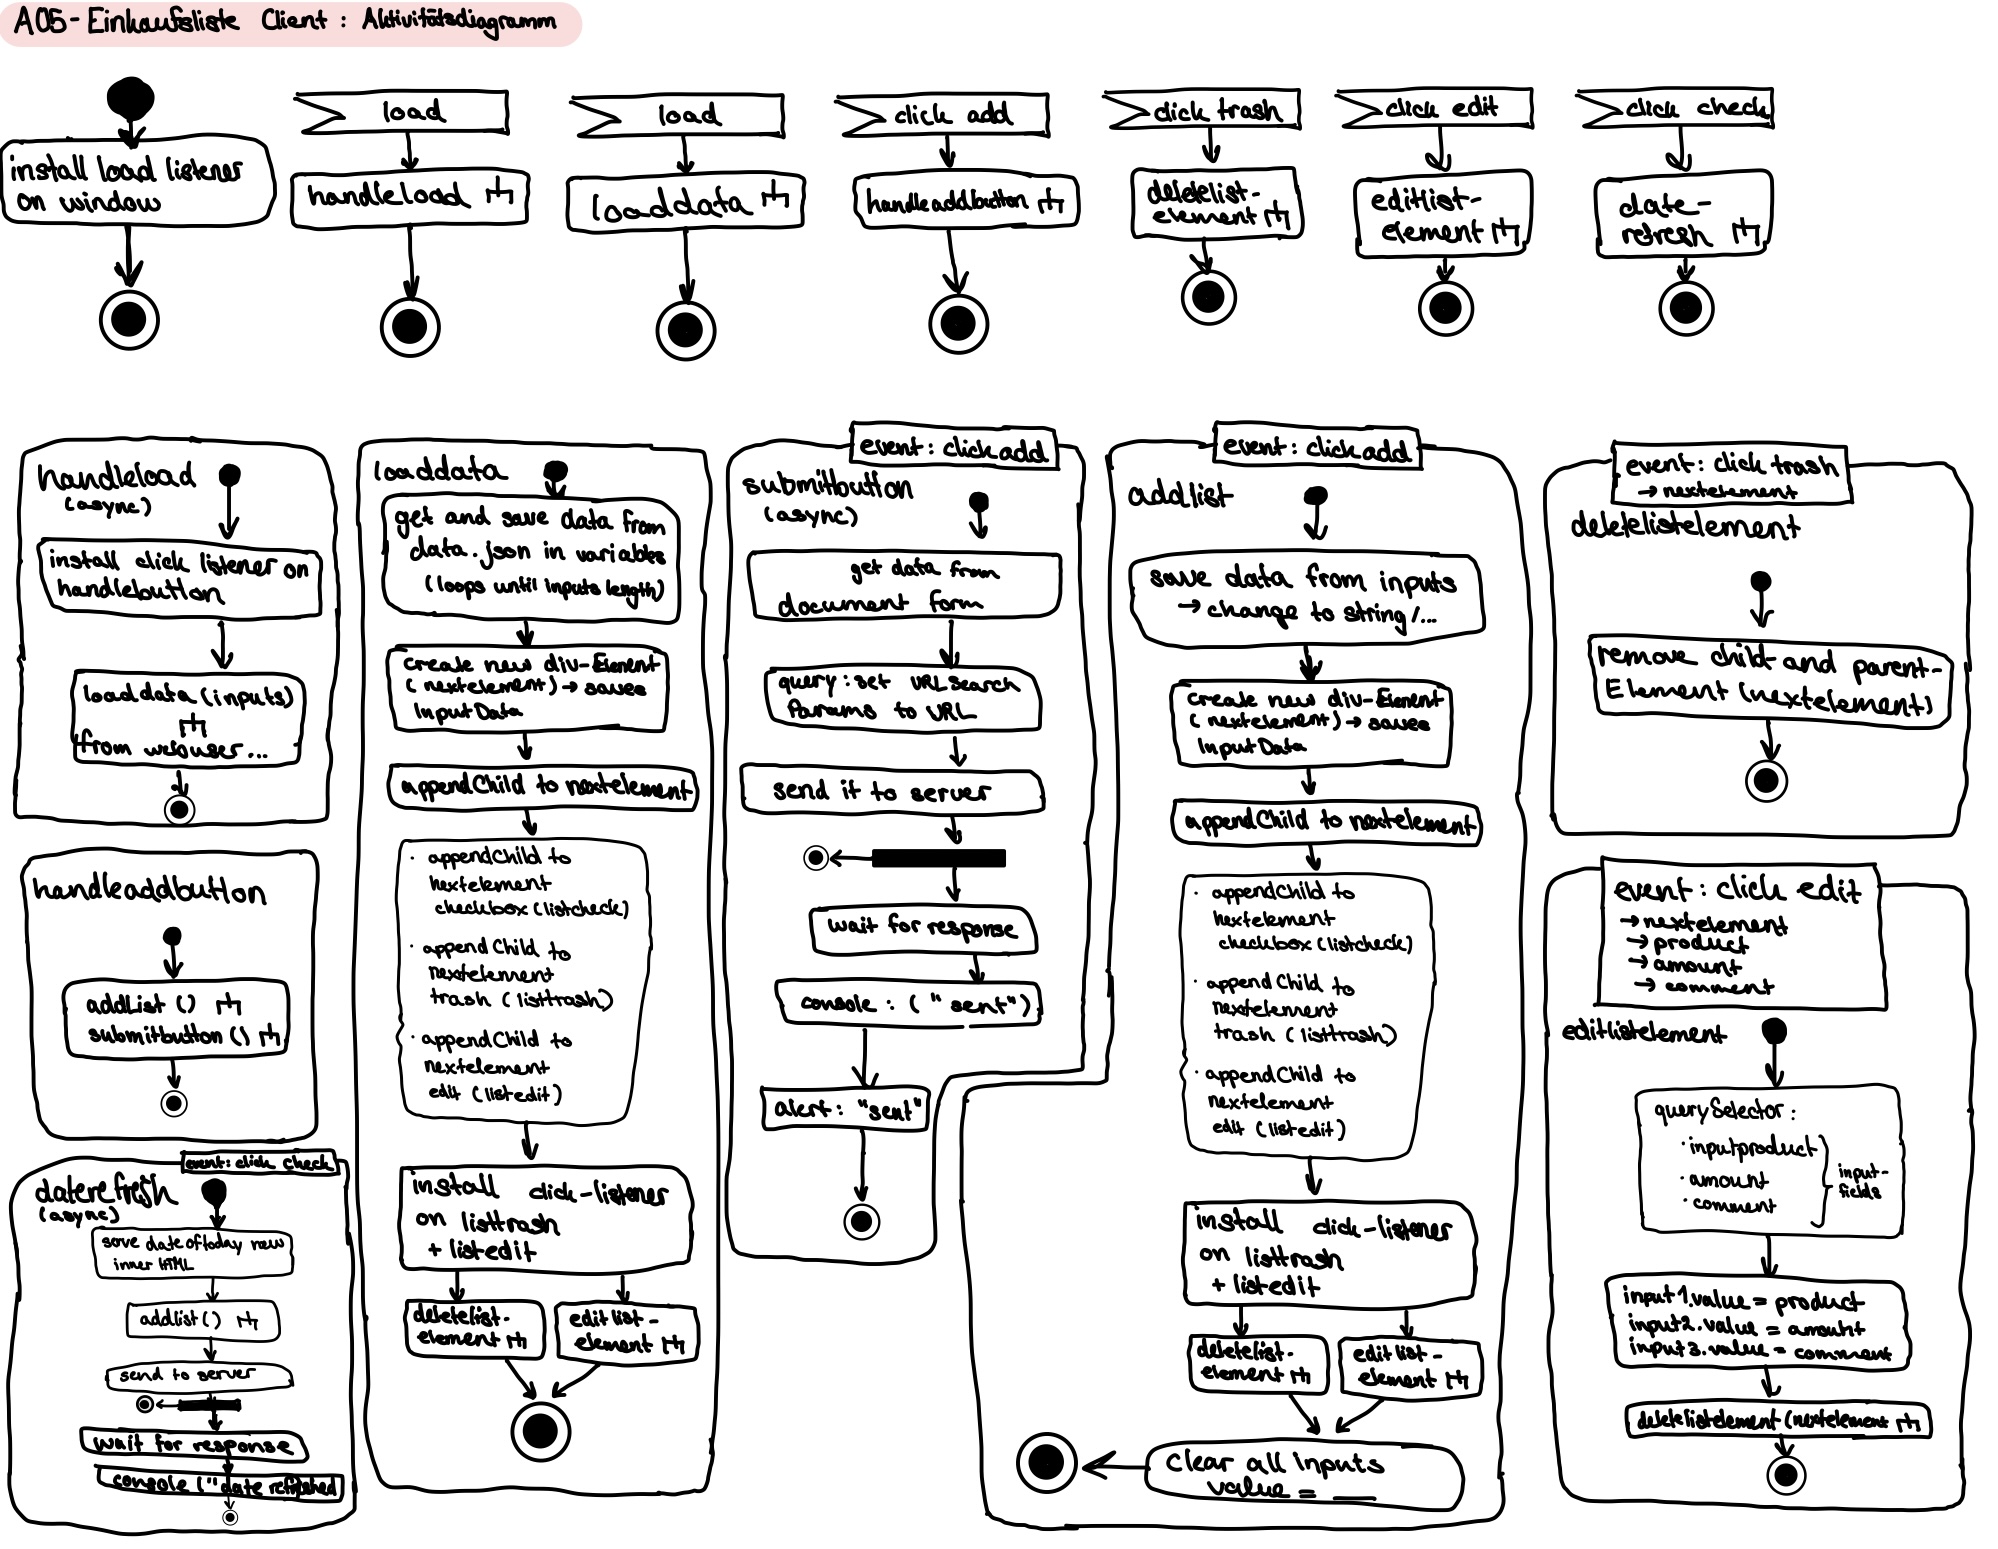 A05- Einkaufsliste Client : Aktivitätsdiagramm
install load listener
on window
load
handleload
load
loaddata
click add
handleaddbutton
click trash
deletelist-
element
click edit
editlist-
element
click check
date-
refresh
handleload
(async)
install click listener on
handlebutton
loaddata (inputs)
from
handleaddbutton
addList ()
submitbutton ()
event: click check
daterefresh
(async)
save date of today new
inner HTML
addlist ()
send to server
wait for response
console ("date refreshed
loaddata
get and save data from
data.json in variables
(loops until inputs length)
create new div-Element
(nextelement) → saves
InputData
appendChild to nextelement
· appendChild to
nextelement
checkbox (listcheck)
· append Child to
nextelement
trash (listtrash)
· appendChild to
nextelement
edit (listedit)
install click-listener
on listtrash
+ listedit
deletelist-
element
editlist-
element
event: click add
submitbutton
(async)
get data from
document form
query: set URLSearch
Params to URL
send it to server
wait for response
console : ("sent")
alert: "sent"
event: click add
addlist
save data from inputs
→ change to string/...
create new div-Element
(nextelement) → saves
InputData
appendChild to nextelement
· appendChild to
nextelement
checkbox (listcheck)
· append Child to
nextelement
trash (listtrash)
· appendChild to
nextelement
edit (listedit)
install click-listener
on listtrash
+ listedit
deletelist-
element
editlist-
element
Clear all inputs
value = __
event: click trash
→ nextelement
deletelistelement
remove child- and parent-
Element (nextelement)
event: click edit
→ nextelement
→ product
→ amount
→ comment
editlistelement
querySelector :
· inputproduct
· amount
· comment
input-
fields
input1.value = product
input2.value = amount
input3.value = comment
deletelistelement (nextelement